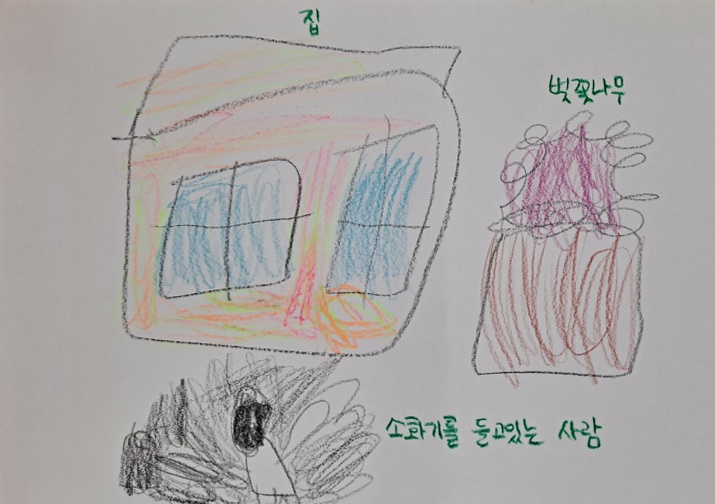 집
벚꽃나무
소화기를 들고있는 사람